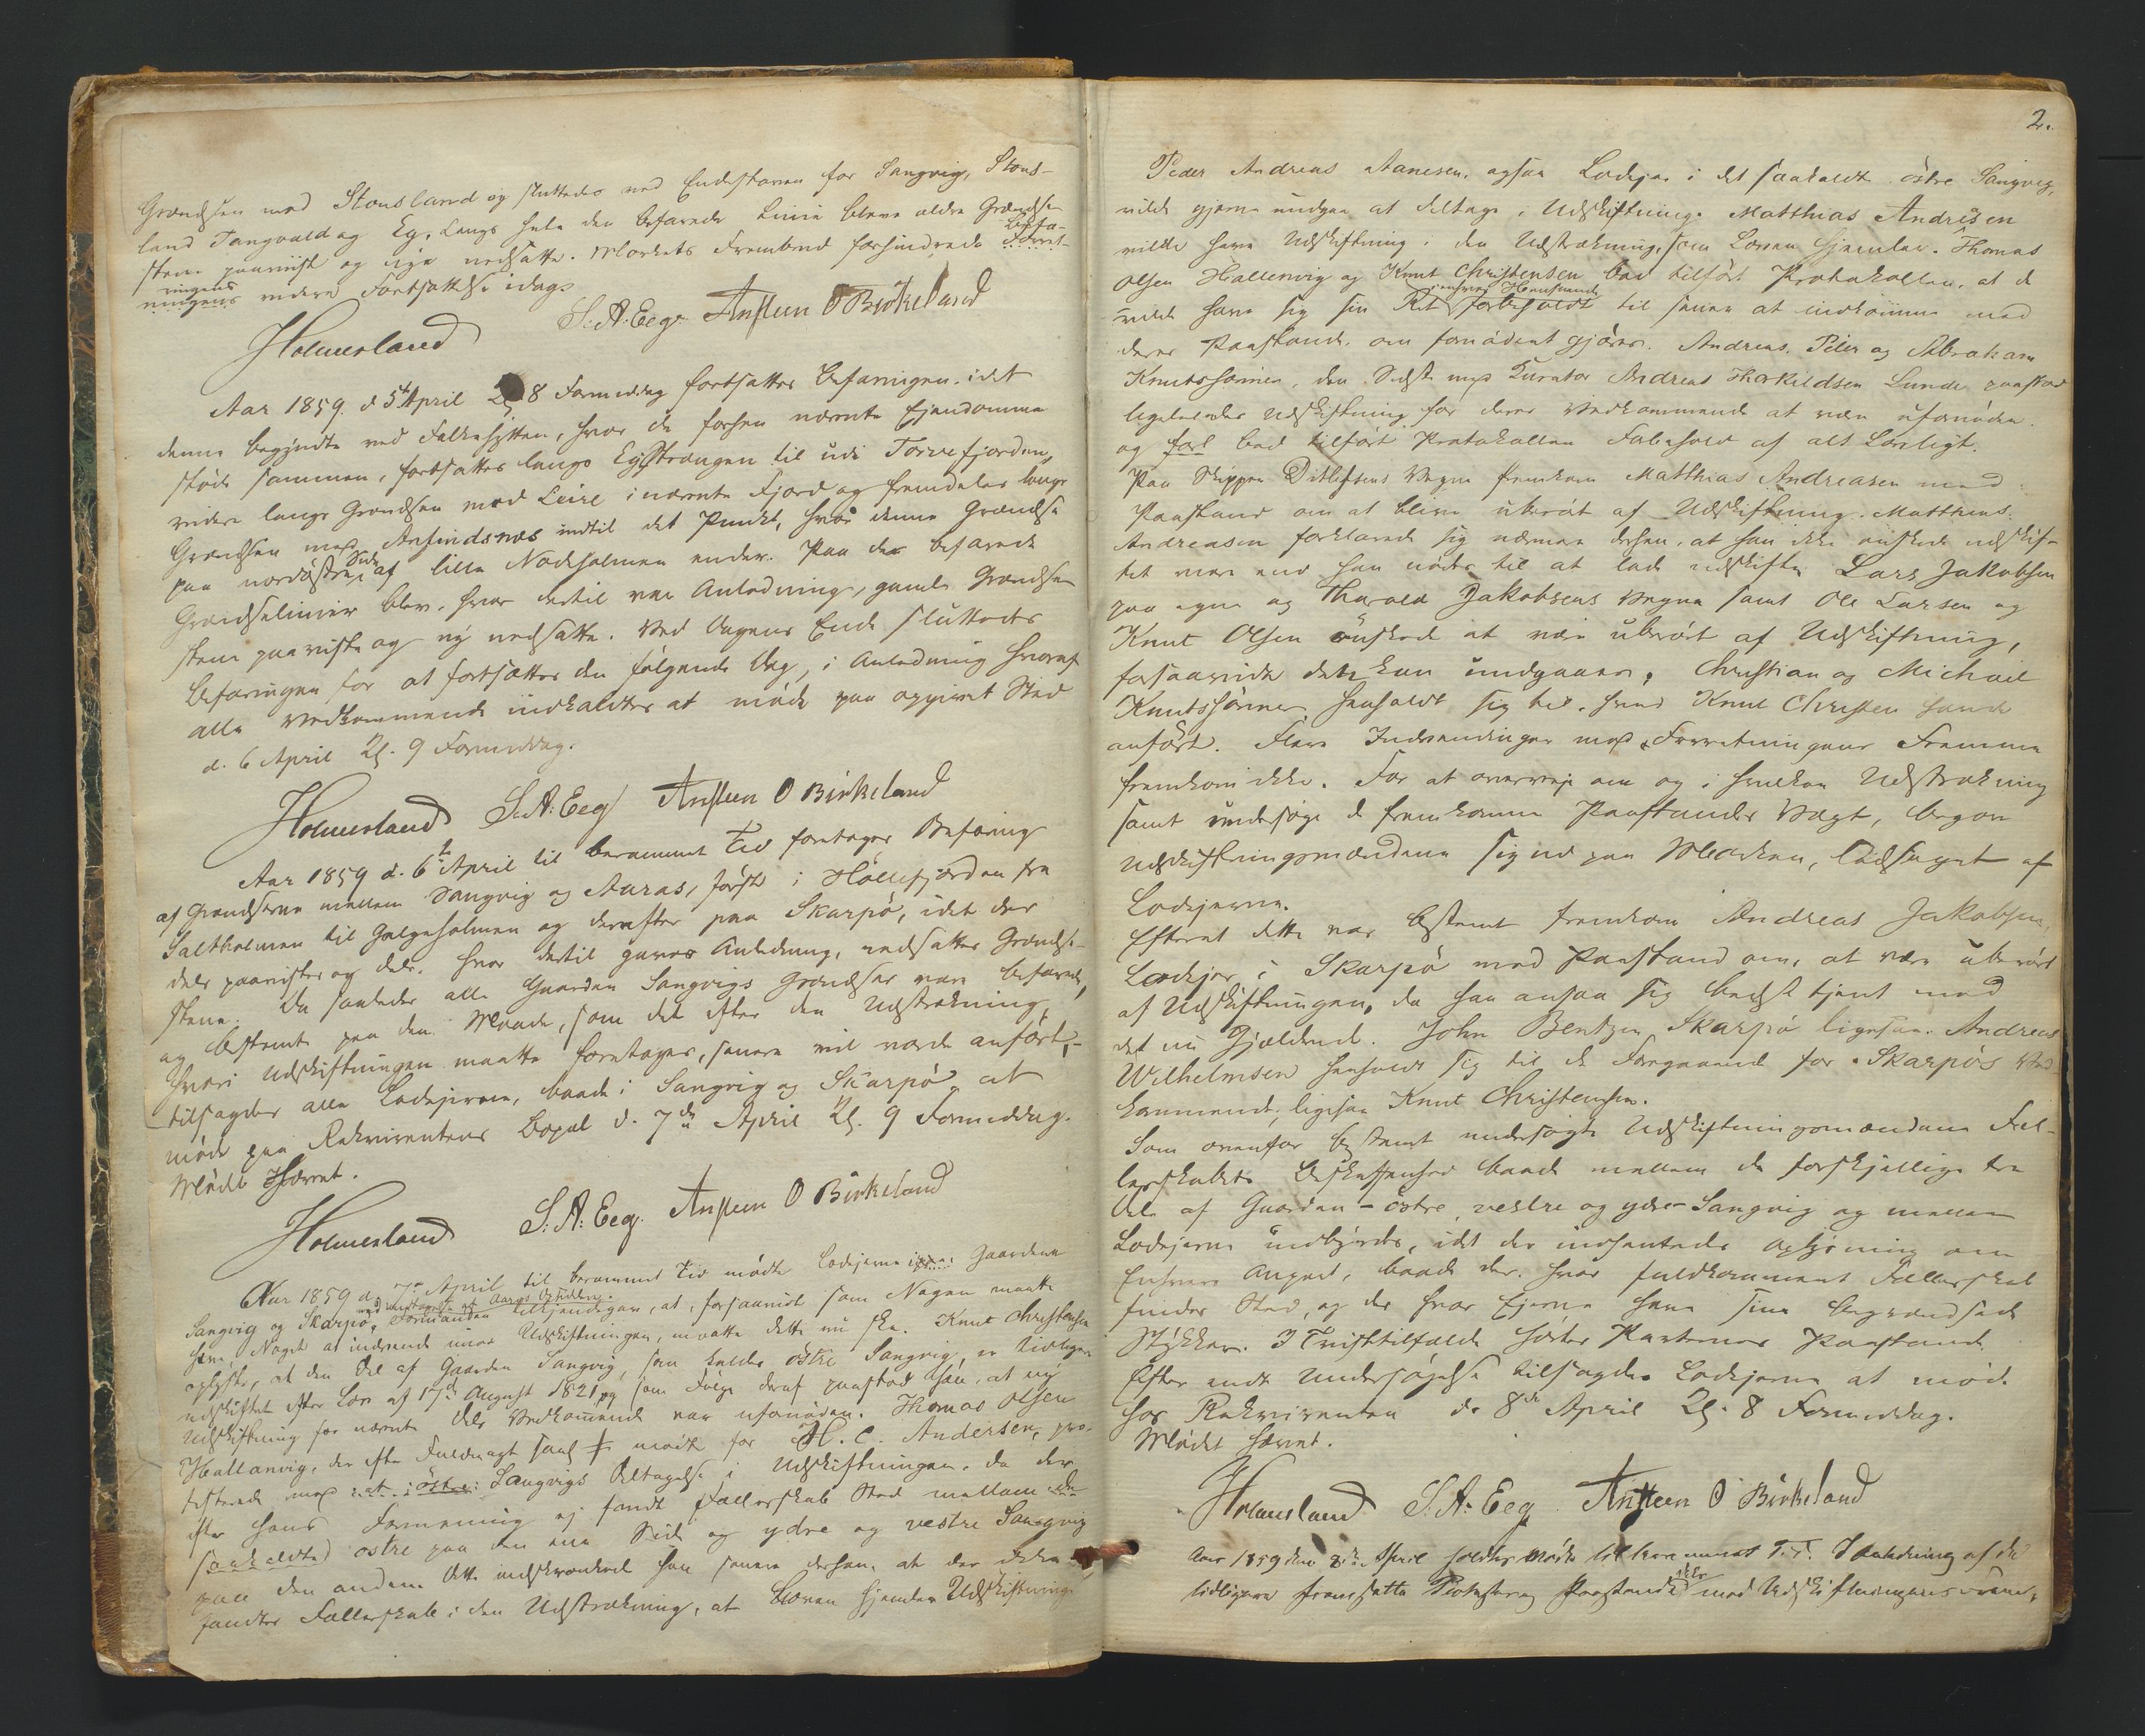 Grændsen med Stousland og sluttedes ved Endestenen for Sangvig, Stous-
land Tangvald og Eg. Langs hele den befarede Linie bleve ældre Grændse
stene paaviist og nye nedsatte. Mørkets Frembrud forhindrede Befa-
ringens videre Fortsættelse idag.
Holmesland S. A. Eeg. Ansteen O Birkeland
Aar 1859. d 5te April Kl 8 Formiddag fortsattes Befaringen, idet
denne begyndte ved Falkehytten, hvor de forhen nævnte Ejendomme
støde sammen, fortsattes langs Egstrangen til udi Torvefjorden,
videre langs Grændsen med Leire i nævnte Fjord og fremdeles langs
Grændsen med Asfindsnæs indtil det Punkt, hvor denne Grændse
paa nordøstre Side af lille Nodeholmen ender. Paa den befarede
Grændselinier blev, hvor dertil var Anledning, gamle Grændse
stene paaviste og ny nedsatte. Ved Dagens Ende sluttedes
Befaringen for at fortsættes den følgende Dag, i Anledning hvoraf
alle Vedkommende indkaldtes at møde paa opgivet Sted
d. 6 April Kl. 9 Formiddag.
Holmesland S. A. Eeg Ansteen O Birkeland
Aar 1859 d. 6te April til berammet Tid foretoges Befaring
af Grændserne mellem Sangvig og Auras, først i Höllefjorden fra
Saltholmen til Galgeholmen og derefter paa Skarpö, idet der
dels paavistes og dels, hvor dertil gaves Anledning, nedsattes Grændse-
stene. Da saaledes alle Gaarden Sangvigs Grændser vare befarede,
og bestemt paa den Maade, som det efter den Udstrækning,
hvori Udskiftningen maatte foretages, senere vil vorde anført,-
tilsagdes alle Lodejerne, baade i Sangvig og Skarpö at
møde paa Rekvirentens Bopæl d. 7de April Kl. 9 Formiddag.
Mødet Hævet.
Holmesland S. A. Eeg. Ansteen O Birkeland
Aar 1859 d. 7de April til berammet Tid mødte Lodejerne i Gaardene
Sangvig og Skarpö, Formanden tilkjendegav, at, forsaavidt som Nogen maatte
have Noget at indvende imod Udskiftningen, maatte dette nu ske. Knut Christensen
oplyste, at den Del af Gaarden Sangvig, som kaldes östre Sangvig er tidligere
udskiftet efter Lov af 17de August 1821 og som Følge deraf paastod han, at ny
Udskiftning for nævnte Dels Vedkommende var ufornøden. Thomas Olsen
Hallanvig, der efter Fuldmagt mødte for H. C. Andersen, pro-
testerede mod östre Sangvigs Deltagelse i Udskiftningen, da der
efter hans Formening ej fandt Fællesskab Sted mellem det
saakaldte östre paa den ene Side og ydre og vestre Sangvig
paa den anden. Dette indskrænkede han senere derhen, at der ikke
fandtes Fællesskab i den Udstrækning, at Loven hjemler Udskiftning.
2.
Peder Andreas Aanesen, ogsaa Lodejer i det saakaldte östre Sangvig,
vilde gjerne undgaa at deltage i Udskiftning. Matthias Andresen
vilde have Udskiftning i den Udstrækning, som Loven hjemler. Thomas
Olsen Hallenvig og Knut Christensen bad tilført Protokollen, at de
vilde have sig sin Ret forbeholdt til senere at indkomme med
deres Paastande, om fornødent gjøres. Andreas, Peder og Abraham
Knutssönner, den Sidste med Curator Andreas Therkildsen Lunde paastod
ligeledes Udskiftning for deres Vedkommende at være ufornøden
og bad tilført Protokollen Forbehold af alt Lovligt.
Paa Skipper Ditlefsens Vegne fremkom Matthias Andreasen med
Paastand om at blive uberört af Udskiftning. Matthias
Andreasen forklarede sig nærmere derhen, at han ikke ønskede udskif-
tet mere end han nødes til at lade udskifte. Lars Jakobsen
paa egne og Tharald Jakobsens Vegne samt Ole Larsen og
Knut Olsen önskede at være uberört af Udskiftning,
forsaavidt dette kan undgaaes. Christian og Michael
Knutssönner henholdt sig til, hvad Knut Christensen havde
anført. Flere Indvendinger mod Forretningens Fremme
fremkom ikke. For at overveje om og i hvilken Udstrækning
samt undersøge de fremkomne Paastandes Vægt, begav
Udskiftningsmændene sig ud paa Marken, ledsaget af
Lodejerne.
Efterat dette var bestemt fremkom Andreas Jakobsen,
Lodejer i Skarpö med Paastand om, at være uberört
af Udskiftningen, da han ansaa sig bedst tjent med
det nu Gjældende. John Bentzen Skarpö ligesaa. Andreas
Wilhelmsen henholdt sig til de Foregaaende for Skarpös Ved-
kommende, ligesaa Knut Christensen.
Som ovenfor bestemt undersøgte Udskiftningsmændene Fæl-
lesskabets Beskaffenhed baade mellem de forskjellige tre
Dele af Gaarden - östre, vestre og ydre Sangvig og mellem
Lodejerne indbyrdes, idet der indhentedes Oplysning om
Enhvers Anpart, baade der, hvor fuldkomment Fællesskab
finder Sted, og der hvor Ejerne have sine begrændsede
Stykker. I Tvisttilfælde hørtes Parternes Paastande.
Efter endt Undersøgelse tilsagdes Lodejerne at møde
hos Rekvirenten d. 8de April Kl. 8 Formiddag.
Mødet hævet.
Holmesland S. A. Eeg. Ansteen O Birkeland
Aar 1859 den 8de April holdtes Møde til berammet T. T. I Anledning af de
tidligere fremsatte Protester og Paastande mod Udskiftningens Frem-